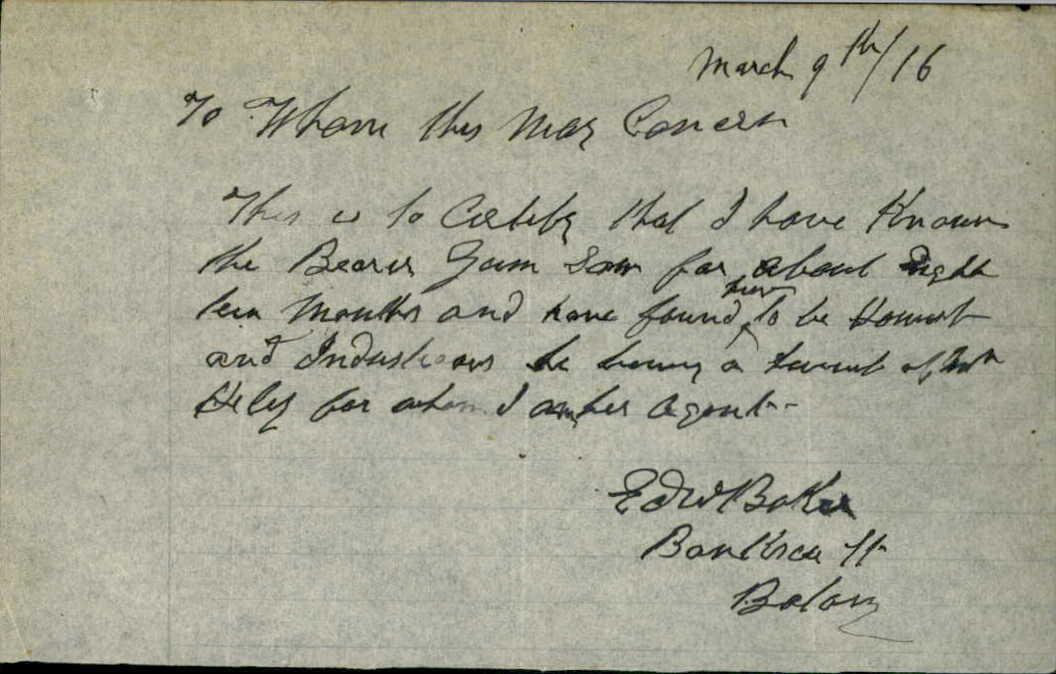 March 9th/16
To Whom this May Concern
This is to Certify that I have Known
the Bearer for about Eight
teen Months and have found him to be Honest
and Industrious he being a tenant of Mrs
Hely for whom I am her Agent
Edw Baker
St
Botany